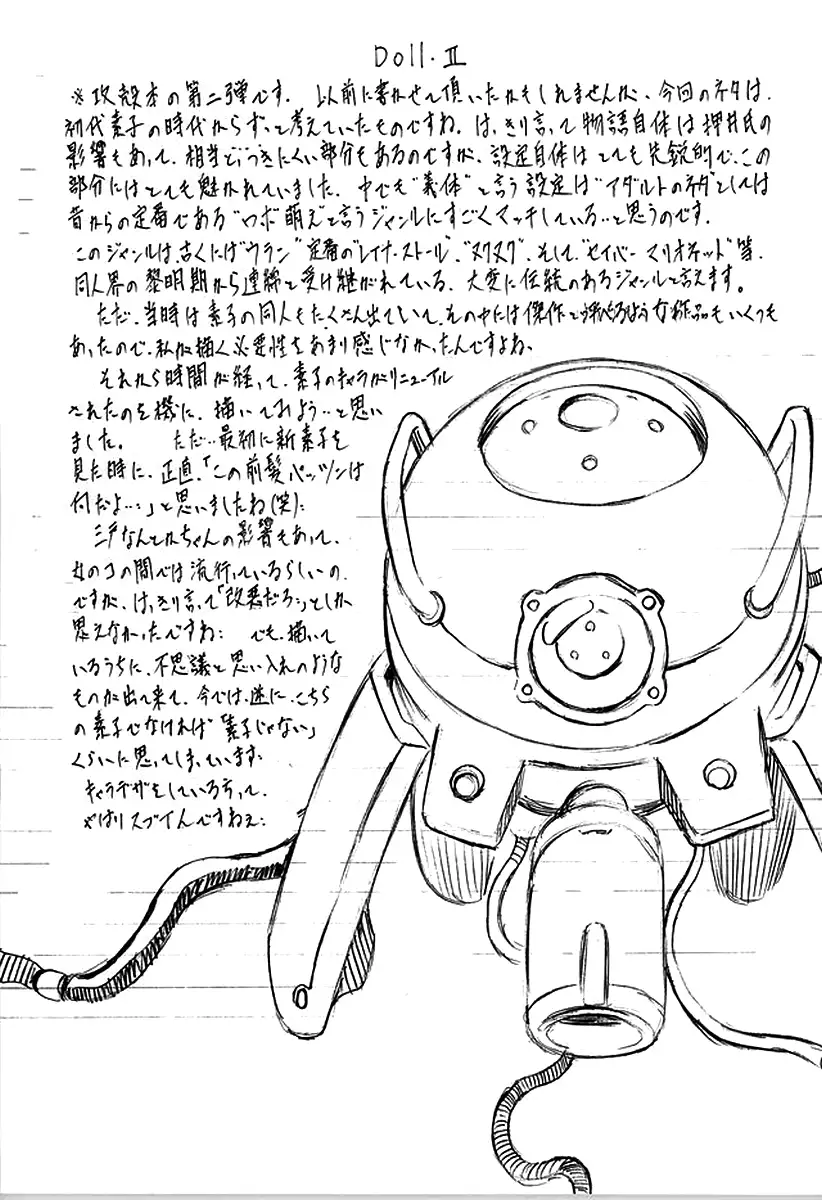 Doll.Ⅱ
※攻殻本の第二弾です. 以前に書かせて頂いたかもしれませんが、今回のネタは.
初代素子の時代からずっと考えていたものですね. はっきり言って物語自体は押井氏の
影響もあって、相当とっつきにくい部分もあるのですが、設定自体はとても先鋭的で、この
部分にはとても魅かれていました. 中でも"義体"と言う設定は"アダルトのネタ"としては
昔からの定番である"ロボ萌え"と言うジャンルにすごくマッチしている…と思うのです.
このジャンルは、古くには"ウラン"定番の"レイナ・ストール"、"ヌクヌク"、そして、"セイバーマリオネット"等.
同人界の黎明期から連綿と受け継がれている、大変に伝統のあるジャンルと言えます。
ただ、当時は素子の同人もたくさん出ていて、その中には傑作と呼べるような作品もいくつも
あったので、私が描く必要性をあまり感じなかったんですよね、
それから時間が経って、素子のキャラがリニューアル
されたのを機に、描いてみよう…と思い
ました. ただ…最初に新素子を
見た時に、正直、「この前髪パッツンは
何だよ…」と思いましたね(笑):
三戸なんとかちゃんの影響もあって、
女のコの間では流行っているらしいの
ですが、はっきり言って「改悪だろ…」としか
思えなかったですね: でも、描いて
いるうちに、不思議と思い入れのような
ものが出て来て、今では、逆に、こちら
の素子でなければ「素子じゃない」
くらいに思ってしまっています.
キャラデザをしている方って、
やはりスゴイんですねぇ: